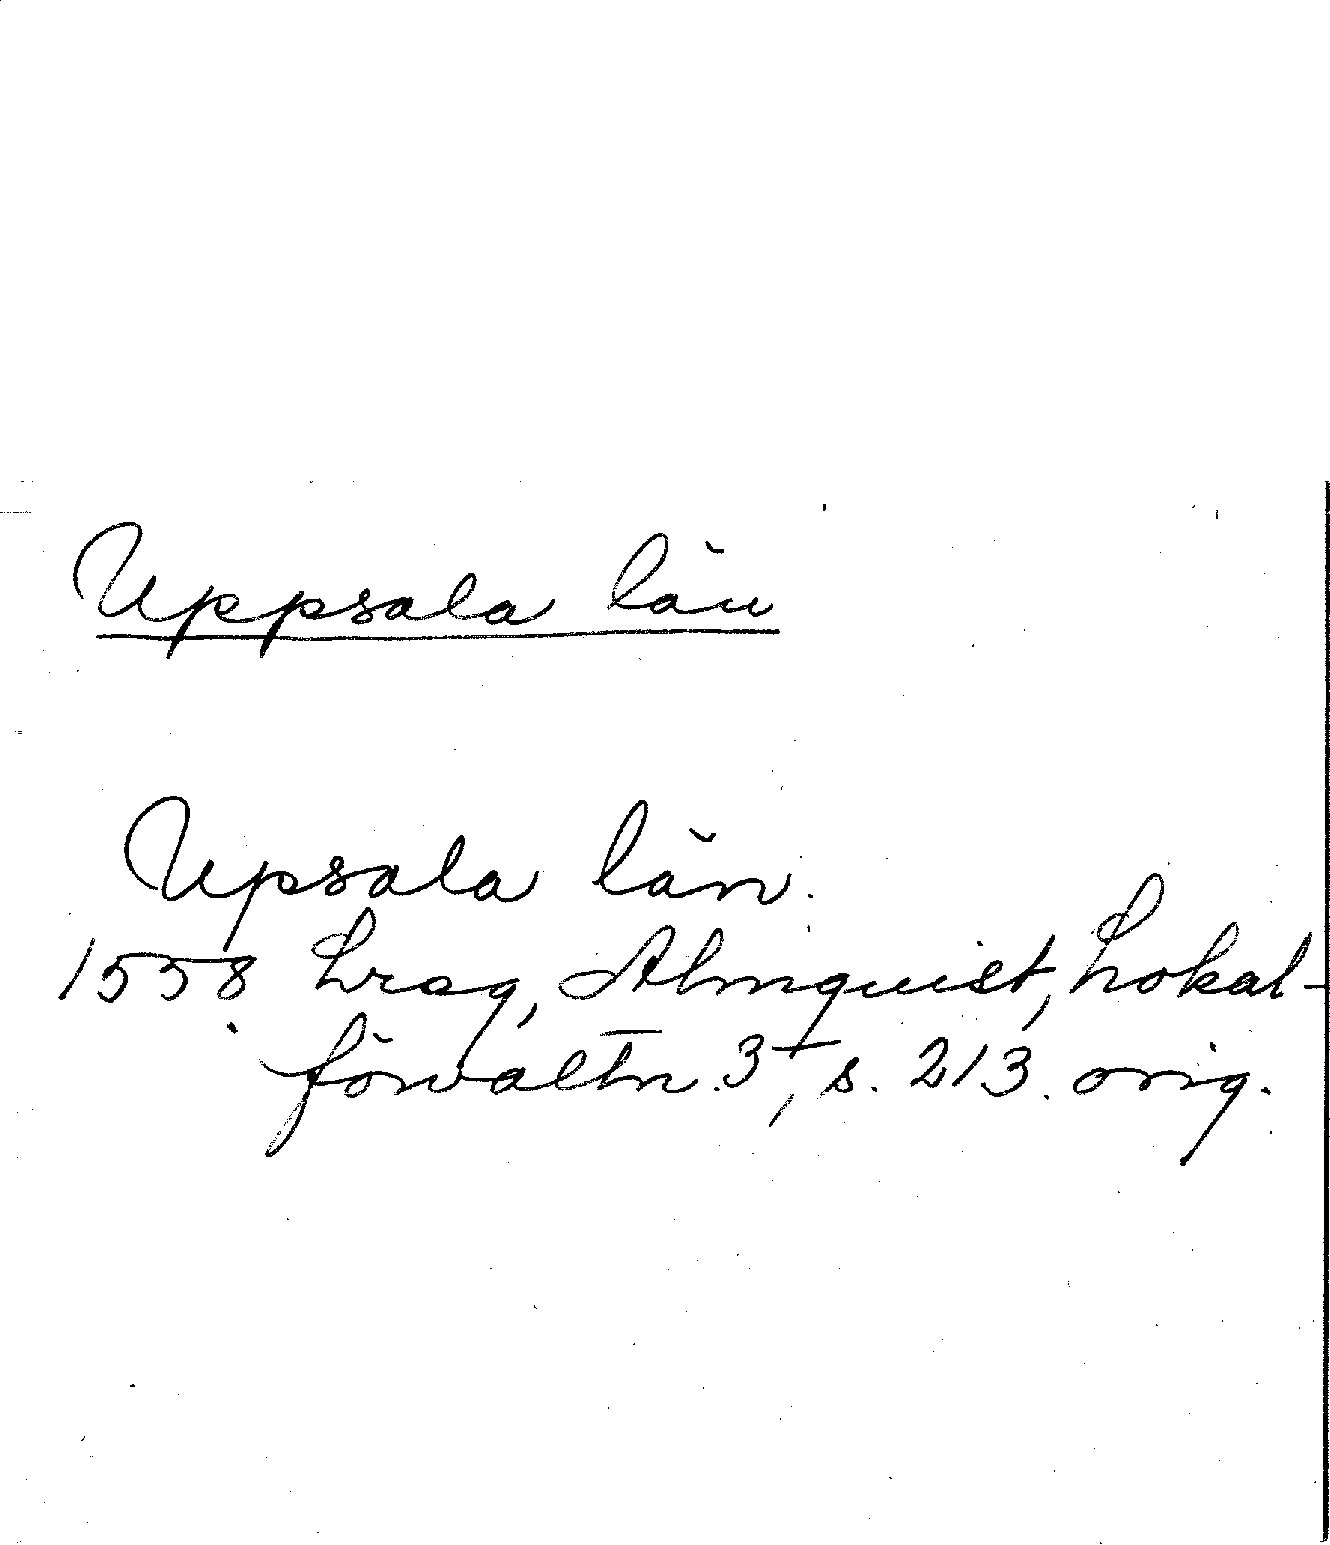 Uppsala län
Upsala län.
1558 Lrag, Almquist, Lokal-
förvaltn. 3, s. 213. orig.